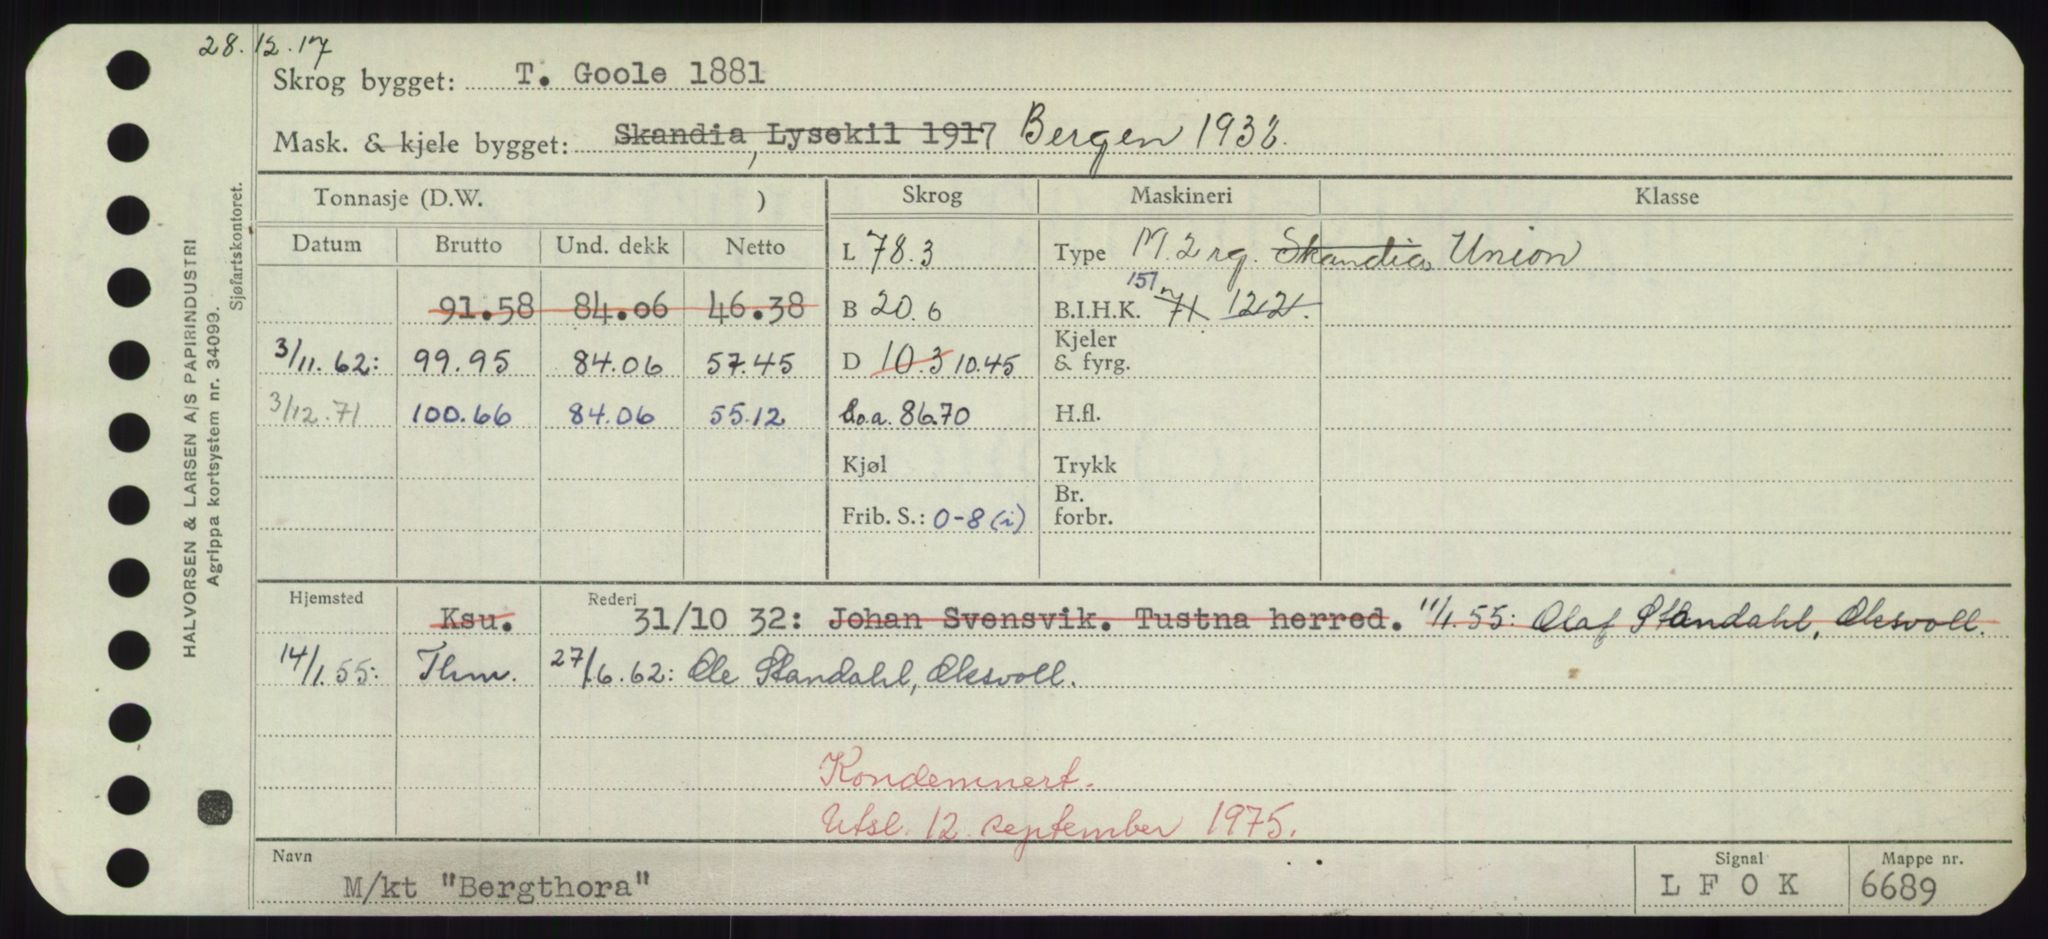 28.12.17
Skrog bygget: T. Goole 1881
Mask. & kjele bygget: Skandia, Lysekil 1917 Bergen 1938.
Tonnasje (D.W. ) Skrog Maskineri Klasse
Datum Brutto Und. dekk Netto L 78.3 Type M. 2 rg. Skandia Union
91.58 84.06 46.38 B 20.6 B.I.H.K. 151 71 122.
3/11.62: 99.95 84.06 57.45 D 10.3 10.45 Kjeler & fyrg.
3/12.71 100.66 84.06 55.12 Lo.a. 86.70 H.fl.
Kjøl Trykk
Frib. S.: 0-8 (i) Br. forbr.
Hjemsted Rederi
Ksu. 31/10 32: Johan Svensvik. Tustna herred. 11/1.55: Olaf Standahl, Oksvoll.
14/1.55: Thm. 27/6.62: Ole Standahl, Oksvoll.
Kondemnert.
Utsl. 12. september 1975.
Navn Signal Mappe nr.
M/kt "Bergthora" L F O K 6689
HALVORSEN & LARSEN A/S PAPIRINDUSTRI
Agrippa kortsystem nr. 34099.
Sjøfartskontoret.